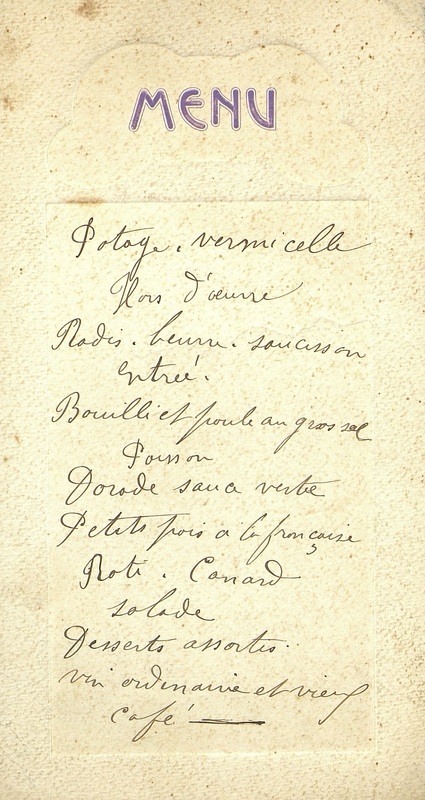 MENU
Potage. vermicelle
Hors d'œuvre
Radis. beurre. saucisson
Entreé.
Bouilli et poule au gros sel
Poisson
Dorade sauce verte
Petits pois à la française
Roti. Canard
salade
Desserts assortis..
vin ordinaire et vieux
café